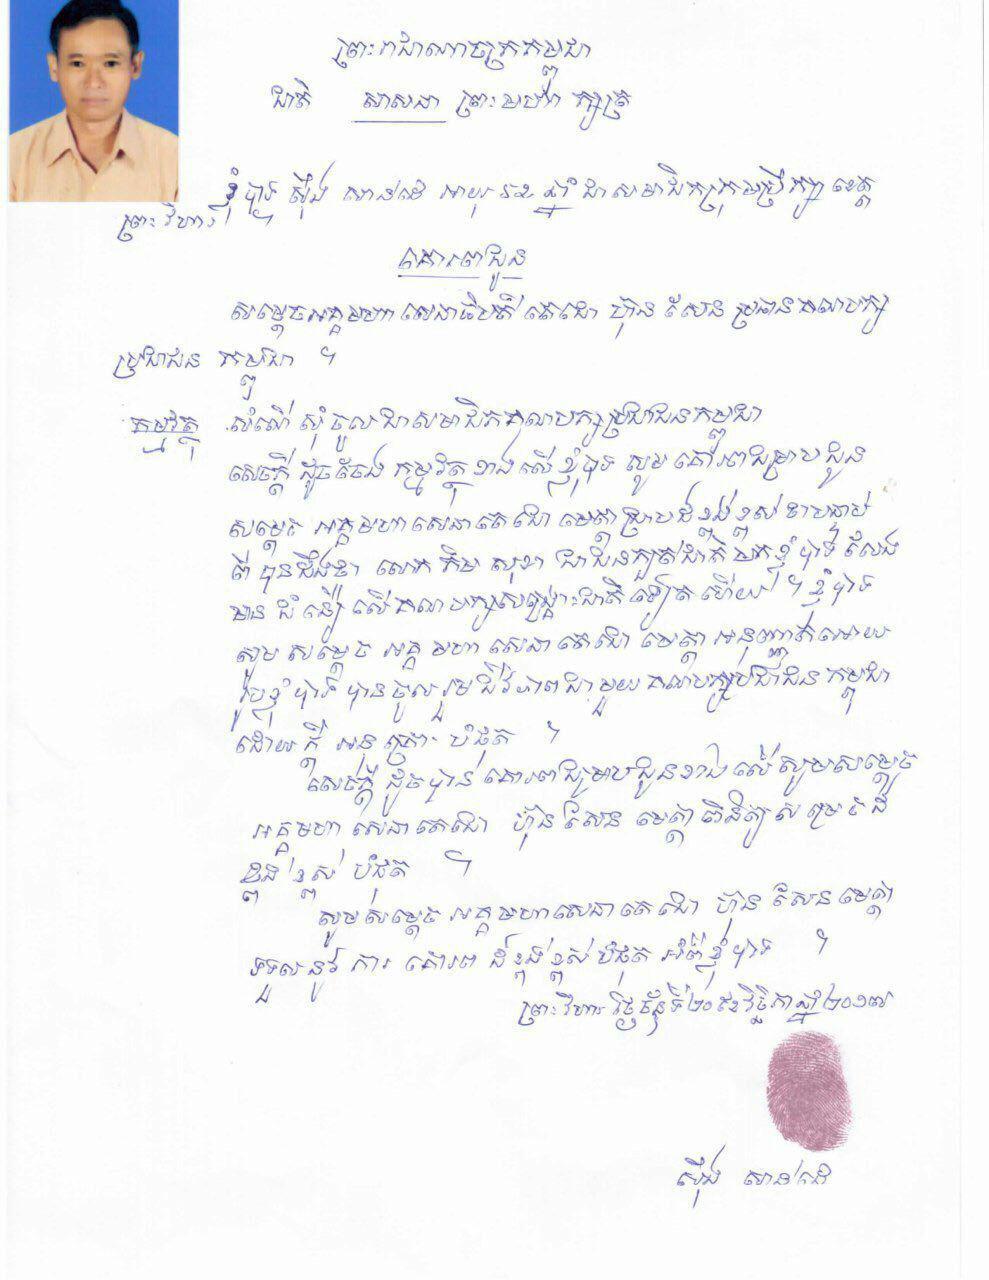 ព្រះរាជាណាចក្រកម្ពុជា
ជាតិ សាសនា ព្រះមហាក្សត្រ
ខ្ញុំបាទ ស៊ឹង សាន់ដេ អាយុ ៤៥ ឆ្នាំ ជាសមាជិកក្រុមប្រឹក្សា ខេត្ត
ព្រះវិហារ ។
គោរពជូន
សម្តេចអគ្គមហាសេនាធិបតី តេជោ ហ៊ុន សែន ប្រធានគណបក្ស
ប្រជាជន កម្ពុជា ។
កម្មវត្ថុ សំណើសុំចូលជាសមាជិកគណបក្សប្រជាជនកម្ពុជា
សេចក្តីដូចចែង កម្មវត្ថុខាងលើខ្ញុំបាទ សូមគោរពជម្រាបជូន
សម្តេច អគ្គមហាសេនាតេជោ មេត្តាជ្រាបដ៏ខ្ពង់ខ្ពស់ថា បន្ទាប់
ពីបានដឹងថា លោក កឹម សុខា ជាជនក្បត់ជាតិមក ខ្ញុំបាទលែង
មានជំនឿលើគណបក្សសង្គ្រោះជាតិទៀតហើយ ។ ខ្ញុំបាទ
សូម សម្តេច អគ្គមហាសេនាតេជោ មេត្តាអនុញ្ញាតអោយ
រូបខ្ញុំបាទ បានចូលរួមជីវភាពជាមួយគណបក្សប្រជាជនកម្ពុជា
ដោយក្តីអនុគ្រោះ បំផុត ។
សេចក្តីដូចបានគោរពជម្រាបជូនខាងលើសូមសម្តេច
អគ្គមហាសេនាតេជោ ហ៊ុន សែន មេត្តាពិនិត្យសម្រេចដ៏
ខ្ពង់ខ្ពស់ បំផុត ។
សូមសម្តេច អគ្គមហាសេនាតេជោ ហ៊ុន សែនមេត្តា
ទទួលនូវការគោរពដ៏ខ្ពង់ខ្ពស់បំផុត អំពីខ្ញុំបាទ ។
ព្រះវិហារ ថ្ងៃច័ន្ទទី២០ ខែវិច្ឆិកាឆ្នាំ២០១៧
ស៊ឹង សាន់ដេ